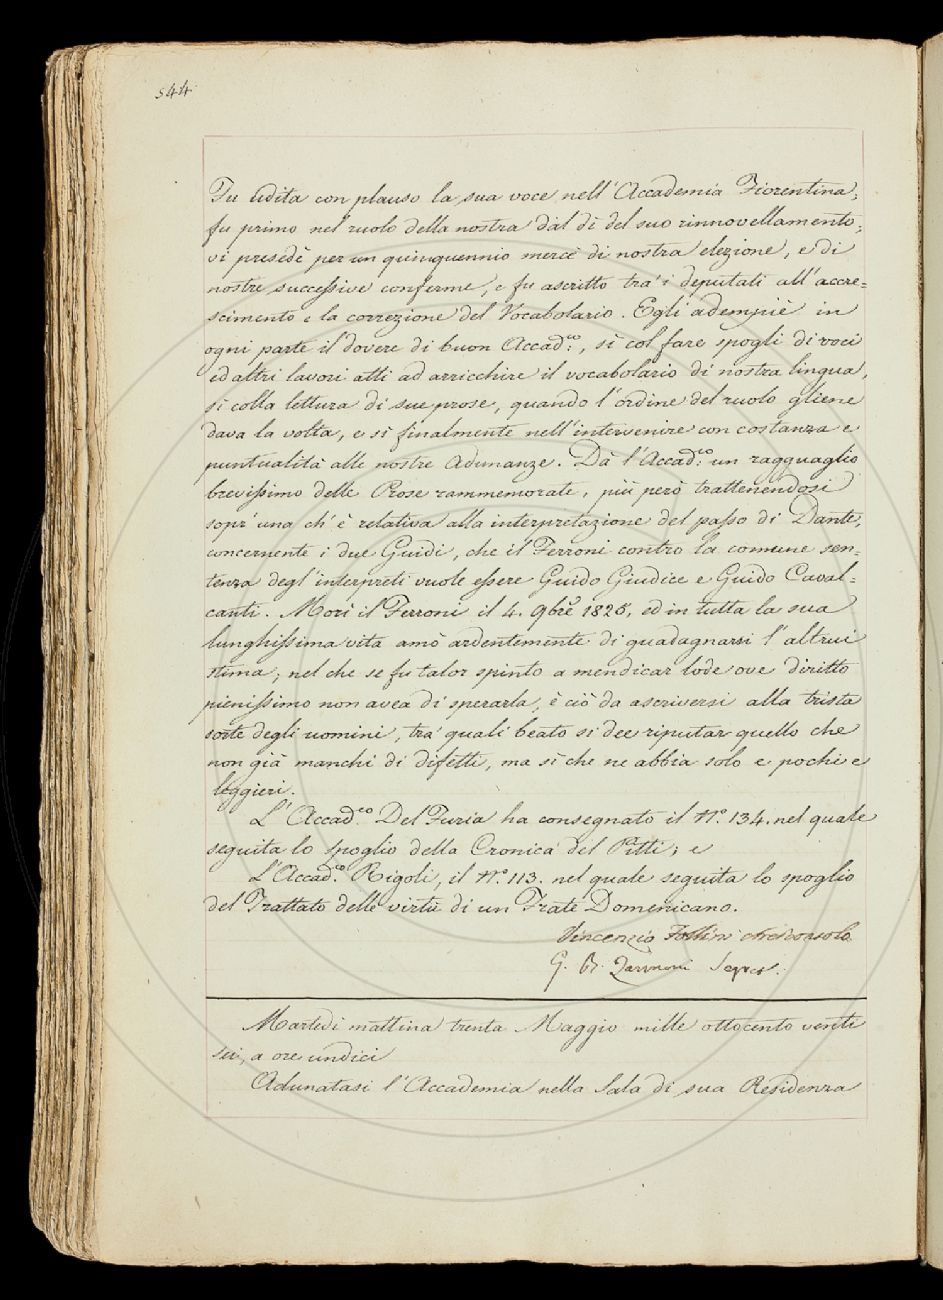 544
Fu udita con plauso la sua voce nell'Accademia Fiorentina;
fu primo nel ruolo della nostra dal dì del suo rinnovellamento;
vi presedè per un quinquennio mercè di nostra elezione, e di
nostre successive conferme, e fu ascritto tra' i deputati all'accre=
scimento e la correzione del Vocabolario. Egli adempiè in
ogni parte il dovere di buon Accad.co, sì col fare spogli di voci
ed altri lavori atti ad arricchire il vocabolario di nostra lingua,
sì colla lettura di sue prose, quando l'ordine del ruolo gliene
dava la volta, e sì finalmente nell'intervenire con costanza e
puntualità alle nostre Adunanze. Dà l'Accad.co un ragguaglio
brevissimo delle Prose rammemorate, più però trattenendosi
sopr'una ch'è relativa alla interpretazione del passo di Dante,
concernente i due Guidi, che il Ferroni contro la comune sen=
tenza degl'interpreti vuole essere Guido Giudice e Guido Caval=
canti. Morì il Ferroni il 4. 9bre 1825, ed in tutta la sua
lunghissima vita amò ardentemente di guadagnarsi l'altrui
stima, nel che se fu talor spinto a mendicar lode ove diritto
pienissimo non avea di sperarla, è ciò da ascriversi alla trista
sorte degli uomini, tra' quali beato si dee riputar quello che
non già manchi di difetti, ma sì che ne abbia solo e pochi e
leggieri.
L'Accad.co Del Furia ha consegnato il N.o 134. nel quale
seguita lo spoglio della Cronica del Pitti; e
L'Accad.co Rigoli, il N.o 113. nel quale seguita lo spoglio
del Trattato delle virtù di un Frate Domenicano.
Vincenzio Follini Arciconsolo
G. B. Zannoni Segret.
Martedì mattina trenta Maggio mille ottocento venti
sei, a ore undici
Adunatasi l'Accademia nella Sala di sua Residenza